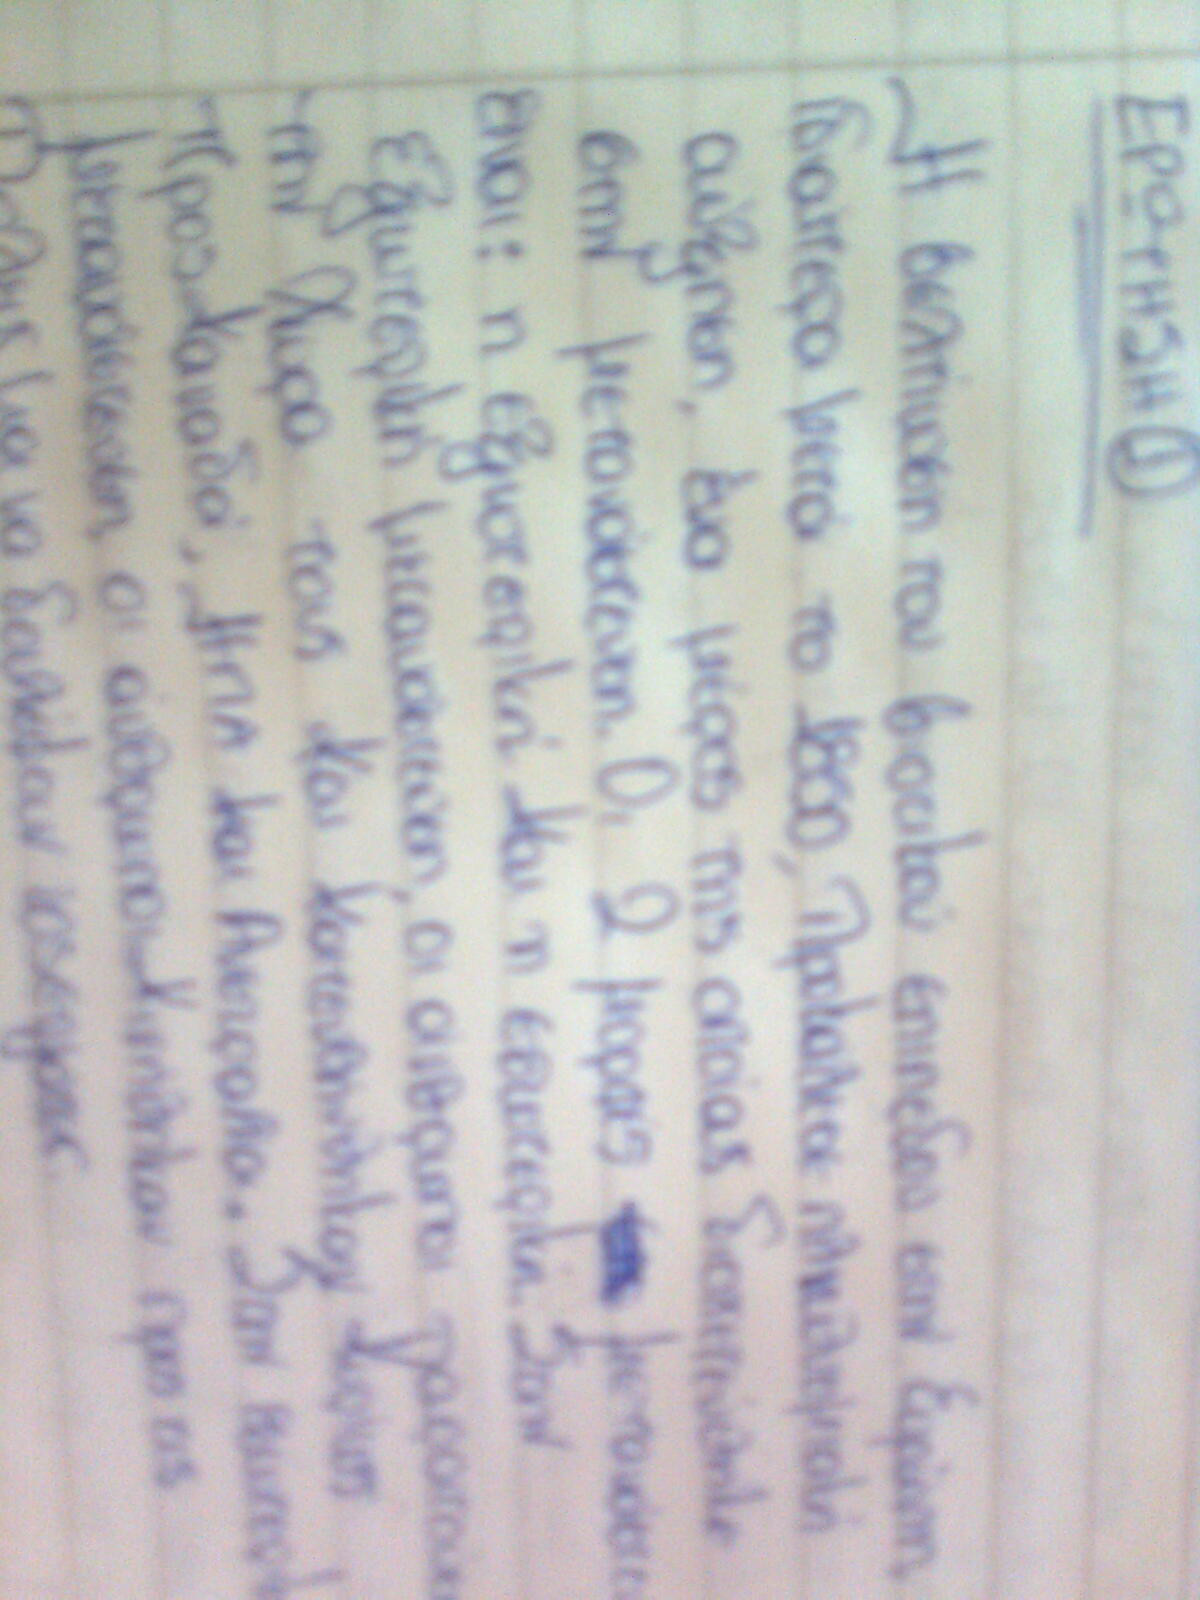 ΕΡΩΤΗΣΗ ①
Η βελτίωση του βιοτικού επιπέδου στην Ευρώπη,
ιδιαίτερα μετά το 1850, προκάλεσε πληθυσμιακή
αύξηση. Ένα μέρος της οποίας διοχετεύτηκε
στην μετανάστευση. Οι 2 μορφές μετανάστευσης
είναι: η εξωτερική και η εσωτερική. Στην
εξωτερική μετανάστευση, οι άνθρωποι
την χώρα τους και κατευθύνθηκαν κυρίως
προς Καναδά, ΗΠΑ και Αυστραλία. Στην εσωτερική
μετανάστευση οι άνθρωποι κινήθηκαν προς τις
πόλεις για να δουλέψουν